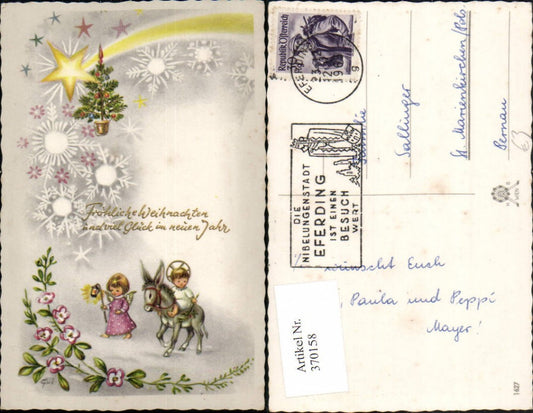 Fröhliche Weihnachten
und viel Glück im neuen Jahr
Republik Österreich
DIE
NIBELUNGENSTADT
EFERDING
IST EINEN
BESUCH
WERT
Sallinger
St. Marienkirchen/Pols.
Bernau
63
wünscht Euch
Paula und Peppi
Mayer!
Artikel Nr.
370158
1627